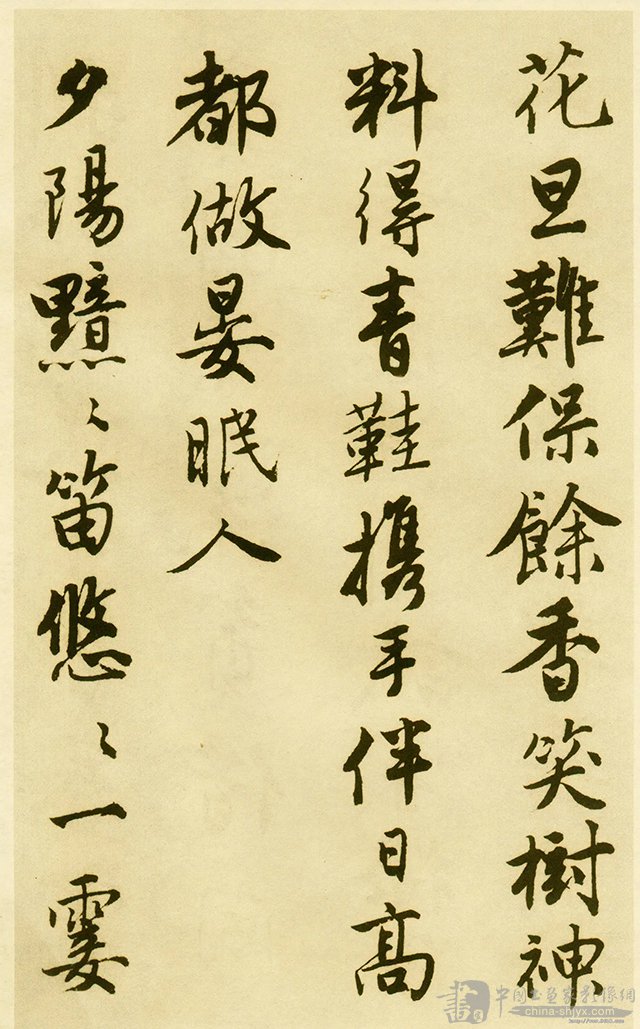 花旦難保餘香笑樹神
料得青鞋携手伴日高
都做晏眠人
夕陽黯〻笛悠〻一霎
中国书画家影像網
www.china-shjyx.com